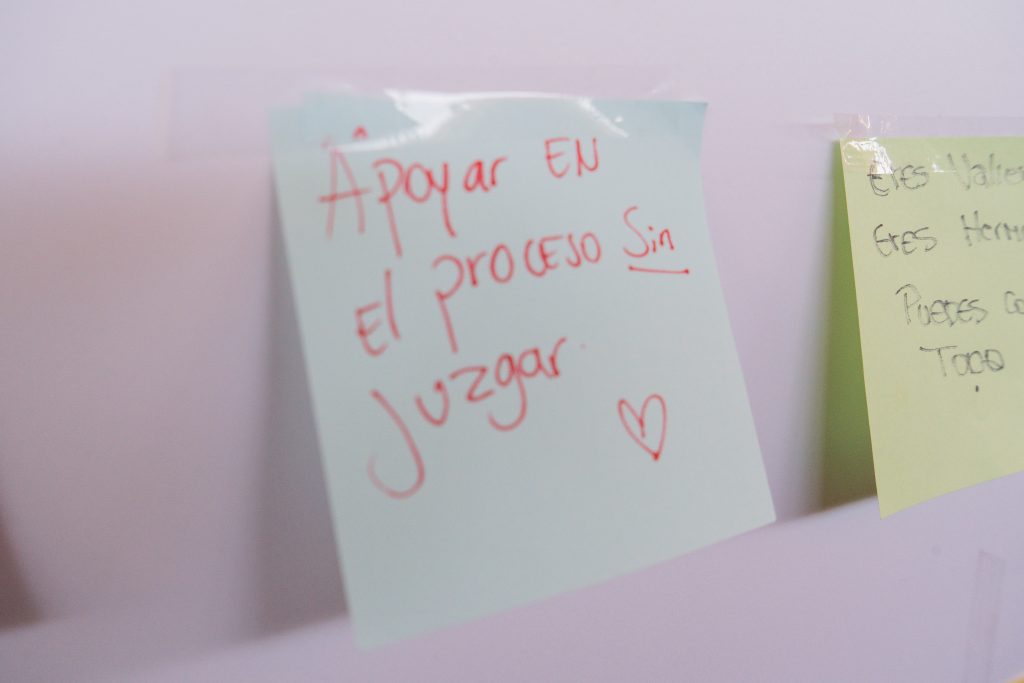 Apoyar EN
El proceso Sin
Juzgar.
Eres
Eres
Puedes
Todo